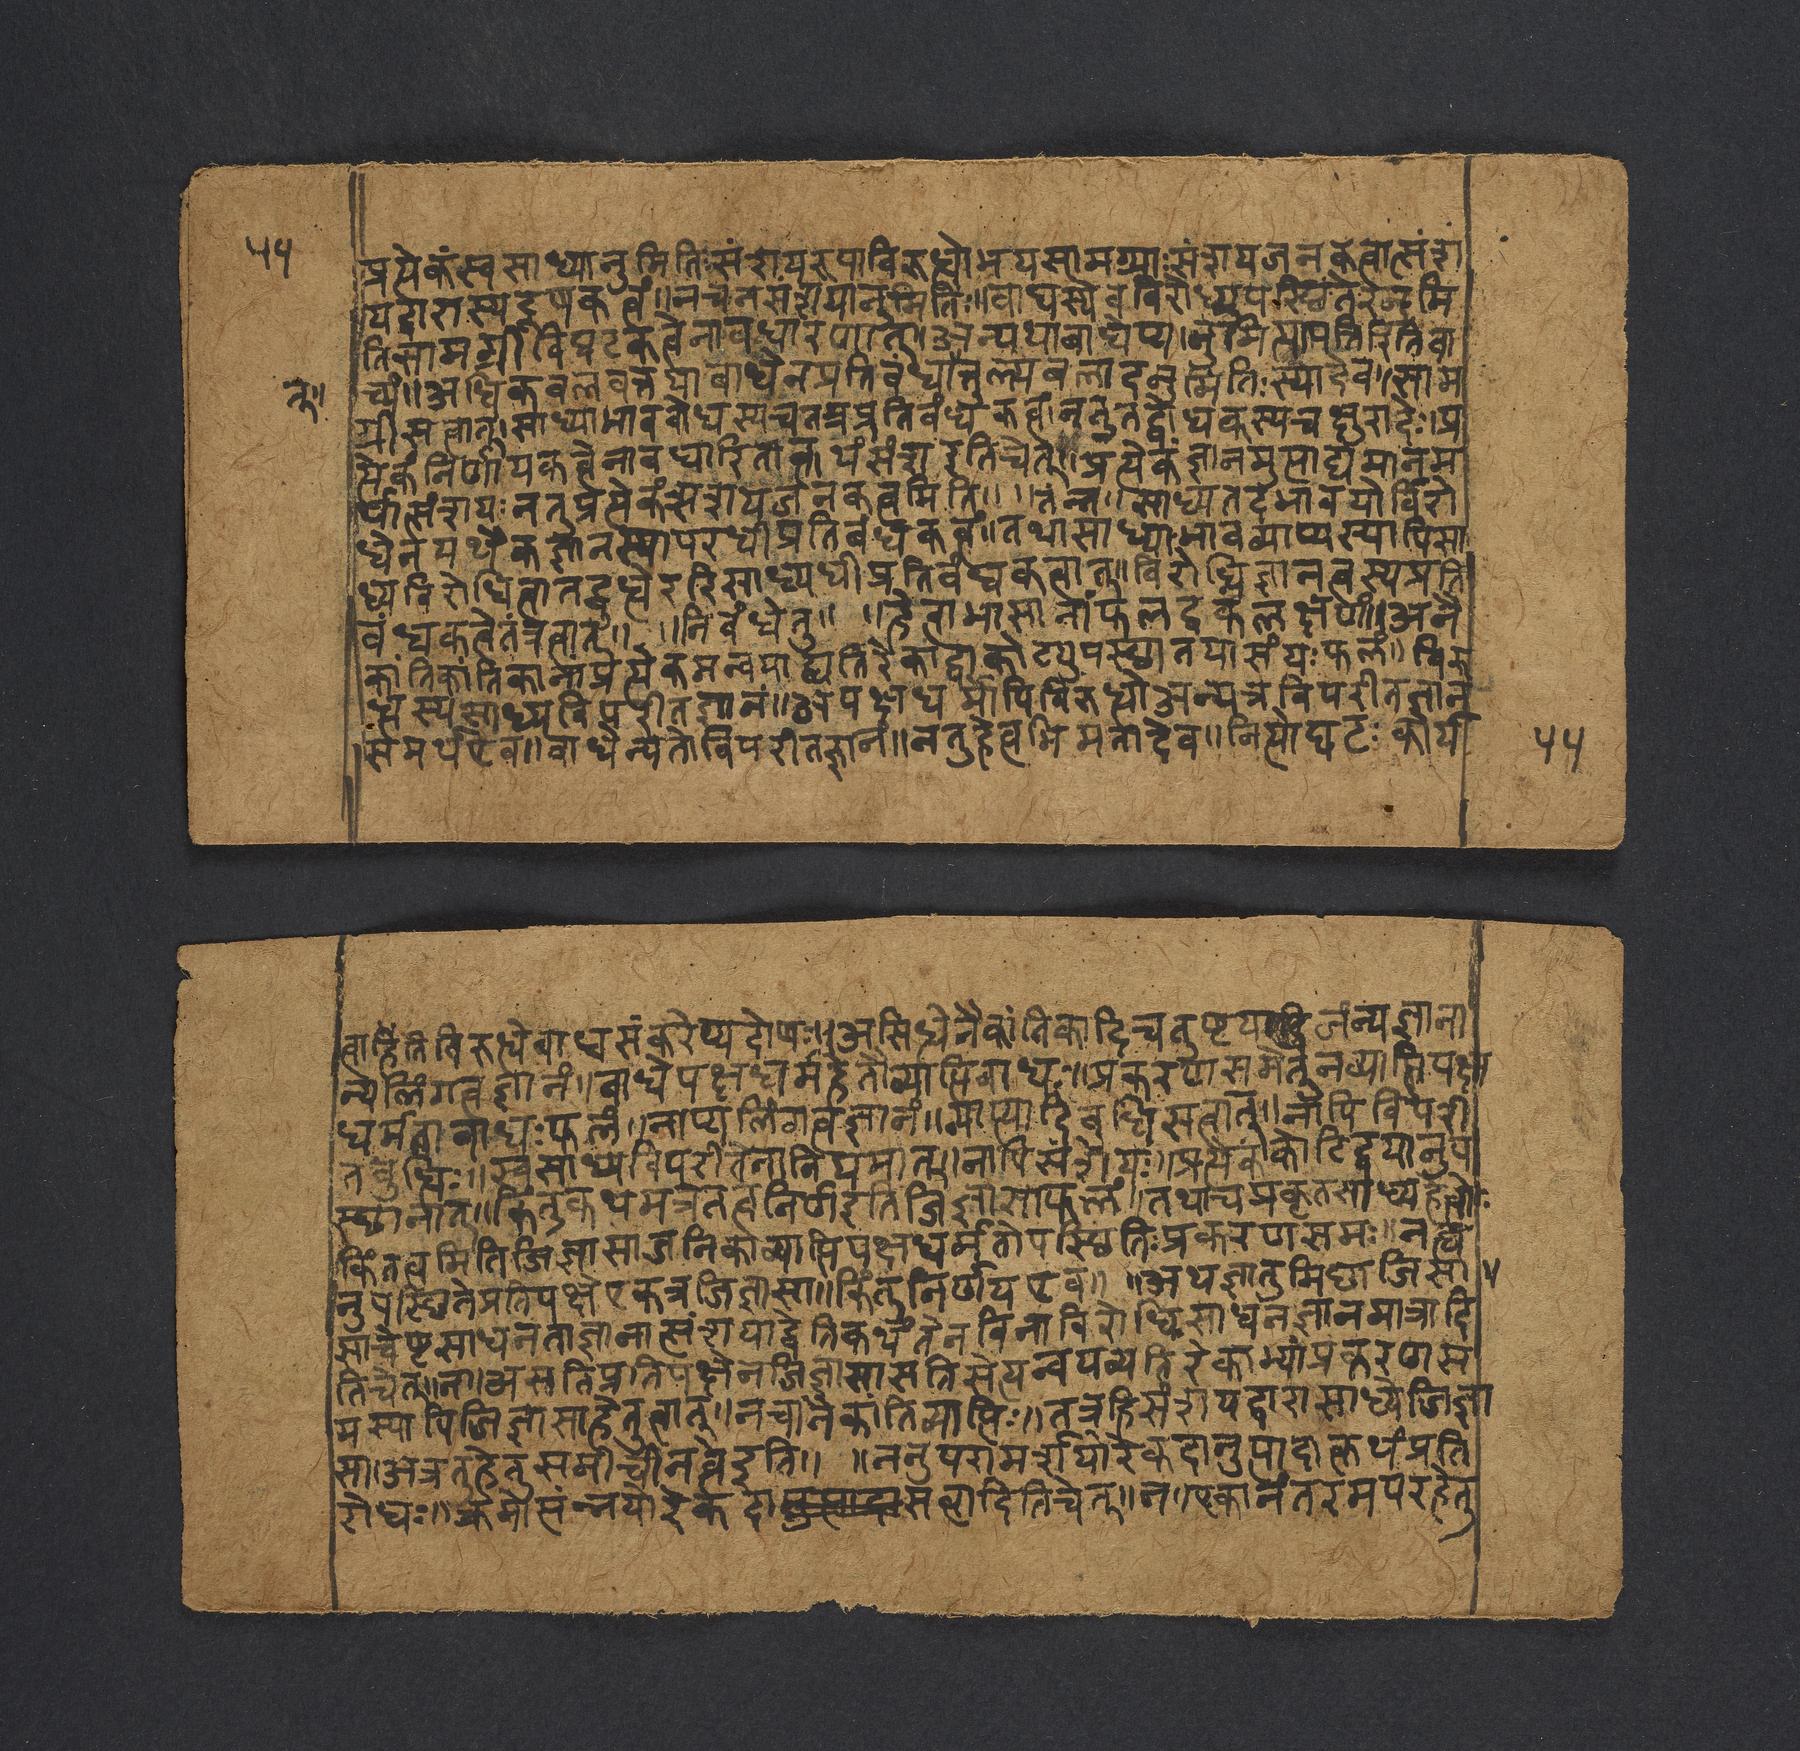 ५५
प्रत्येकं स्वसाध्यानुमितिः संशयरूपा विरुध्धोभयसामग्र्याः संशयजनकत्वात्संश
यद्वारास्य दूषकत्वं॥ न च न संशयानुमितिः॥ बाधस्येव विरोध्युपस्थितेरनुमि
तिसामग्री विघटकत्वेनावधारणात्। अन्यथा बाधेप्य॥ नुमित्यापत्तिरिति वा
च्यं॥ अधिकबलवत्तया बाधेन प्रतिबंधात्तुल्यबलादनुमितिः स्यादेव॥ साम
नु॥
ग्रीसत्वात्। साध्याभावबोधस्य च तत्र प्रतिबंधकत्वान्न तु तद्बोधकस्य चक्षुरादेः। प्र
त्येकं निर्णायकत्वेनावधारितात्कथं संश इति चेत्॥ प्रत्येकं ज्ञानमुत्पाद्यमानम
र्थात्संशयः न तु प्रत्येकं संशयजनकत्वमिति॥ ॥तन्न॥ साध्यतदभावयोर्विरो
धेन यथैकज्ञानस्यापरधीप्रतिबंधकत्वं॥ तथा साध्याभावव्याप्यस्यापि सा
ध्यविरोधित्वात्तद्बुध्धेरपि साध्यधीप्रतिबंधकत्वात्॥ विरोधिज्ञानत्वस्य प्रति
बंधकत्वे तंत्रत्वात्॥ ॥निबंधेतु॥ ॥हेत्वाभासानां फलद्वकलक्षणं॥ अनै
कांतिकांतिकानां प्रत्येकमन्वयाद्व्यतिरेकाद्वा कोट्युपस्थातया संयः फलं॥ विरु
ध्धस्य साध्यविपरीतज्ञानं॥ अपक्षधर्मोपि विरुध्धो अन्यत्र विपरीतज्ञान
समर्थ एव॥ बाधेन्यतो विपरीतज्ञानं॥ न तु हेत्वभिमतादेव॥ नित्यो घटः कार्य
५५
त्वादिति विरुध्धे बाधसंकरेप्यदोषः॥ असिध्धेनैकांतिकादिचतुष्टया जन्यज्ञाना
न्यलिंगत्वज्ञानं॥ बाधे पक्षधर्महेतौ व्याप्तिबाधः॥ प्रकरणसमे तु न व्याप्तिपक्ष
धर्मताबाधः फलं॥ नाप्यलिंगत्वज्ञानं॥ व्याप्त्यादिबुध्धिसत्वात्॥ नापि विपरी
तबुध्धिः॥ स्वसाध्यविपरीतेनानियमात्॥ नापि संशयः॥ प्रत्येकं कोटिद्वयानुप
स्थानात्॥ किंतु कथमत्र तत्वनिर्ण इति जिज्ञासाफलं॥ तथाच प्रकृतसाध्यहेत्वोः
किंतत्वमिति जिज्ञासाजनिका व्याप्तिपक्षधर्मतोपस्थितिः प्रकरणसमः॥ न ह्य
नुपस्थिते प्रतिपक्षे एकत्र जिज्ञासा॥ किंतु निर्णय एव॥ ॥अथ ज्ञातुमिछा जिसा
साचेष्टसाधनताज्ञानात्संशयाद्वेति कथं तेन विना विरोधिसाधनज्ञानमात्रादि
ति चेत्॥ न॥ असति प्रतिपक्षे न जिज्ञासा सति सेत्यन्वयव्यतिरेकाभ्यां प्रकरणस
मस्यापि जिज्ञासाहेतुत्वात्॥ न चानैकांतिव्याप्तिः॥ तत्र हि संशयद्वारा साध्ये जिज्ञा
सा। अत्र तु हेतुसमीचीनत्वे इति॥ ॥ननु परामर्शयोरेकदानुत्पादात्कथं प्रति
रोधः॥ क्रमोत्पन्नयोरेकदा सत्वादिति चेत्॥ न॥ एकानंतरमपरहेतु